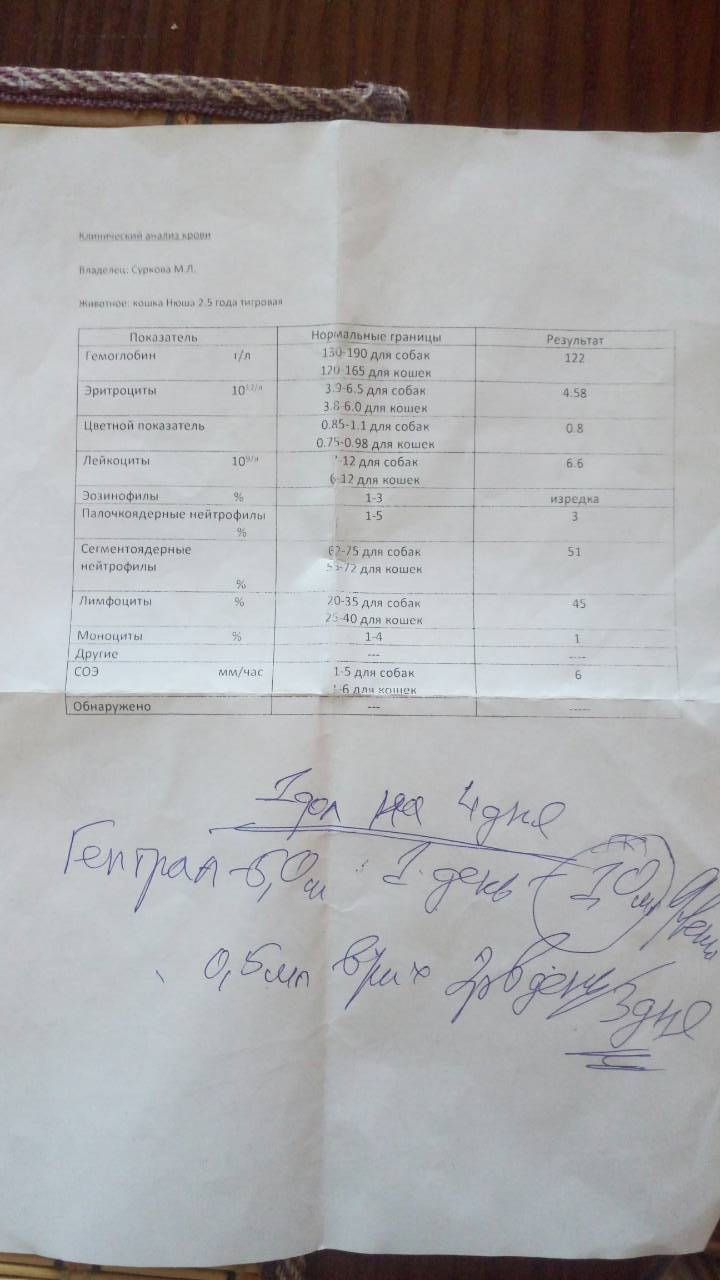 Клинический анализ крови
Владелец: Суркова М.Л.
Животное: кошка Нюша 2.5 года тигровая
Показатель Нормальные границы Результат
Гемоглобин г/л 130-190 для собак 122
120-165 для кошек
Эритроциты 10^12/л 3.9-6.5 для собак 4.58
3.8-6.0 для кошек
Цветной показатель 0.85-1.1 для собак 0.8
0.75-0.98 для кошек
Лейкоциты 10^9/л -12 для собак 6.6
6-12 для кошек
Эозинофилы % 1-3 изредка
Палочкоядерные нейтрофилы 1-5 3
%
Сегментоядерные 62-75 для собак 51
нейтрофилы -72 для кошек
%
Лимфоциты % 20-35 для собак 45
25-40 для кошек
Моноциты % 1-4 1
Другие --- ----
СОЭ мм/час 1-5 для собак 6
-6 для кошек
Обнаружено --- -----
1 фл на 4 дня
Гептрал - 5,0 мл 1 день - 1,0 мл
0,5 мл в/м 2 р в день 3 дня